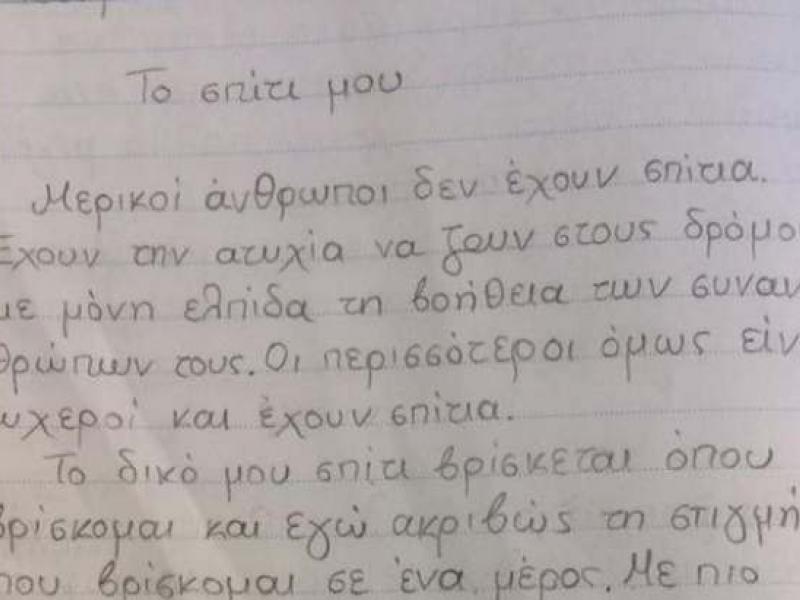 Το σπίτι μου
Μερικοί άνθρωποι δεν έχουν σπίτια.
Έχουν την ατυχία να ζουν στους δρόμο
με μόνη ελπίδα τη βοήθεια των συναν
θρώπων τους. Οι περισσότεροι όμως είν
υχεροί και έχουν σπίτια.
Το δικό μου σπίτι βρίσκεται όπου
βρίσκομαι και εγώ ακριβώς τη στιγμή
που βρίσκομαι σε ένα μέρος. Με πιο